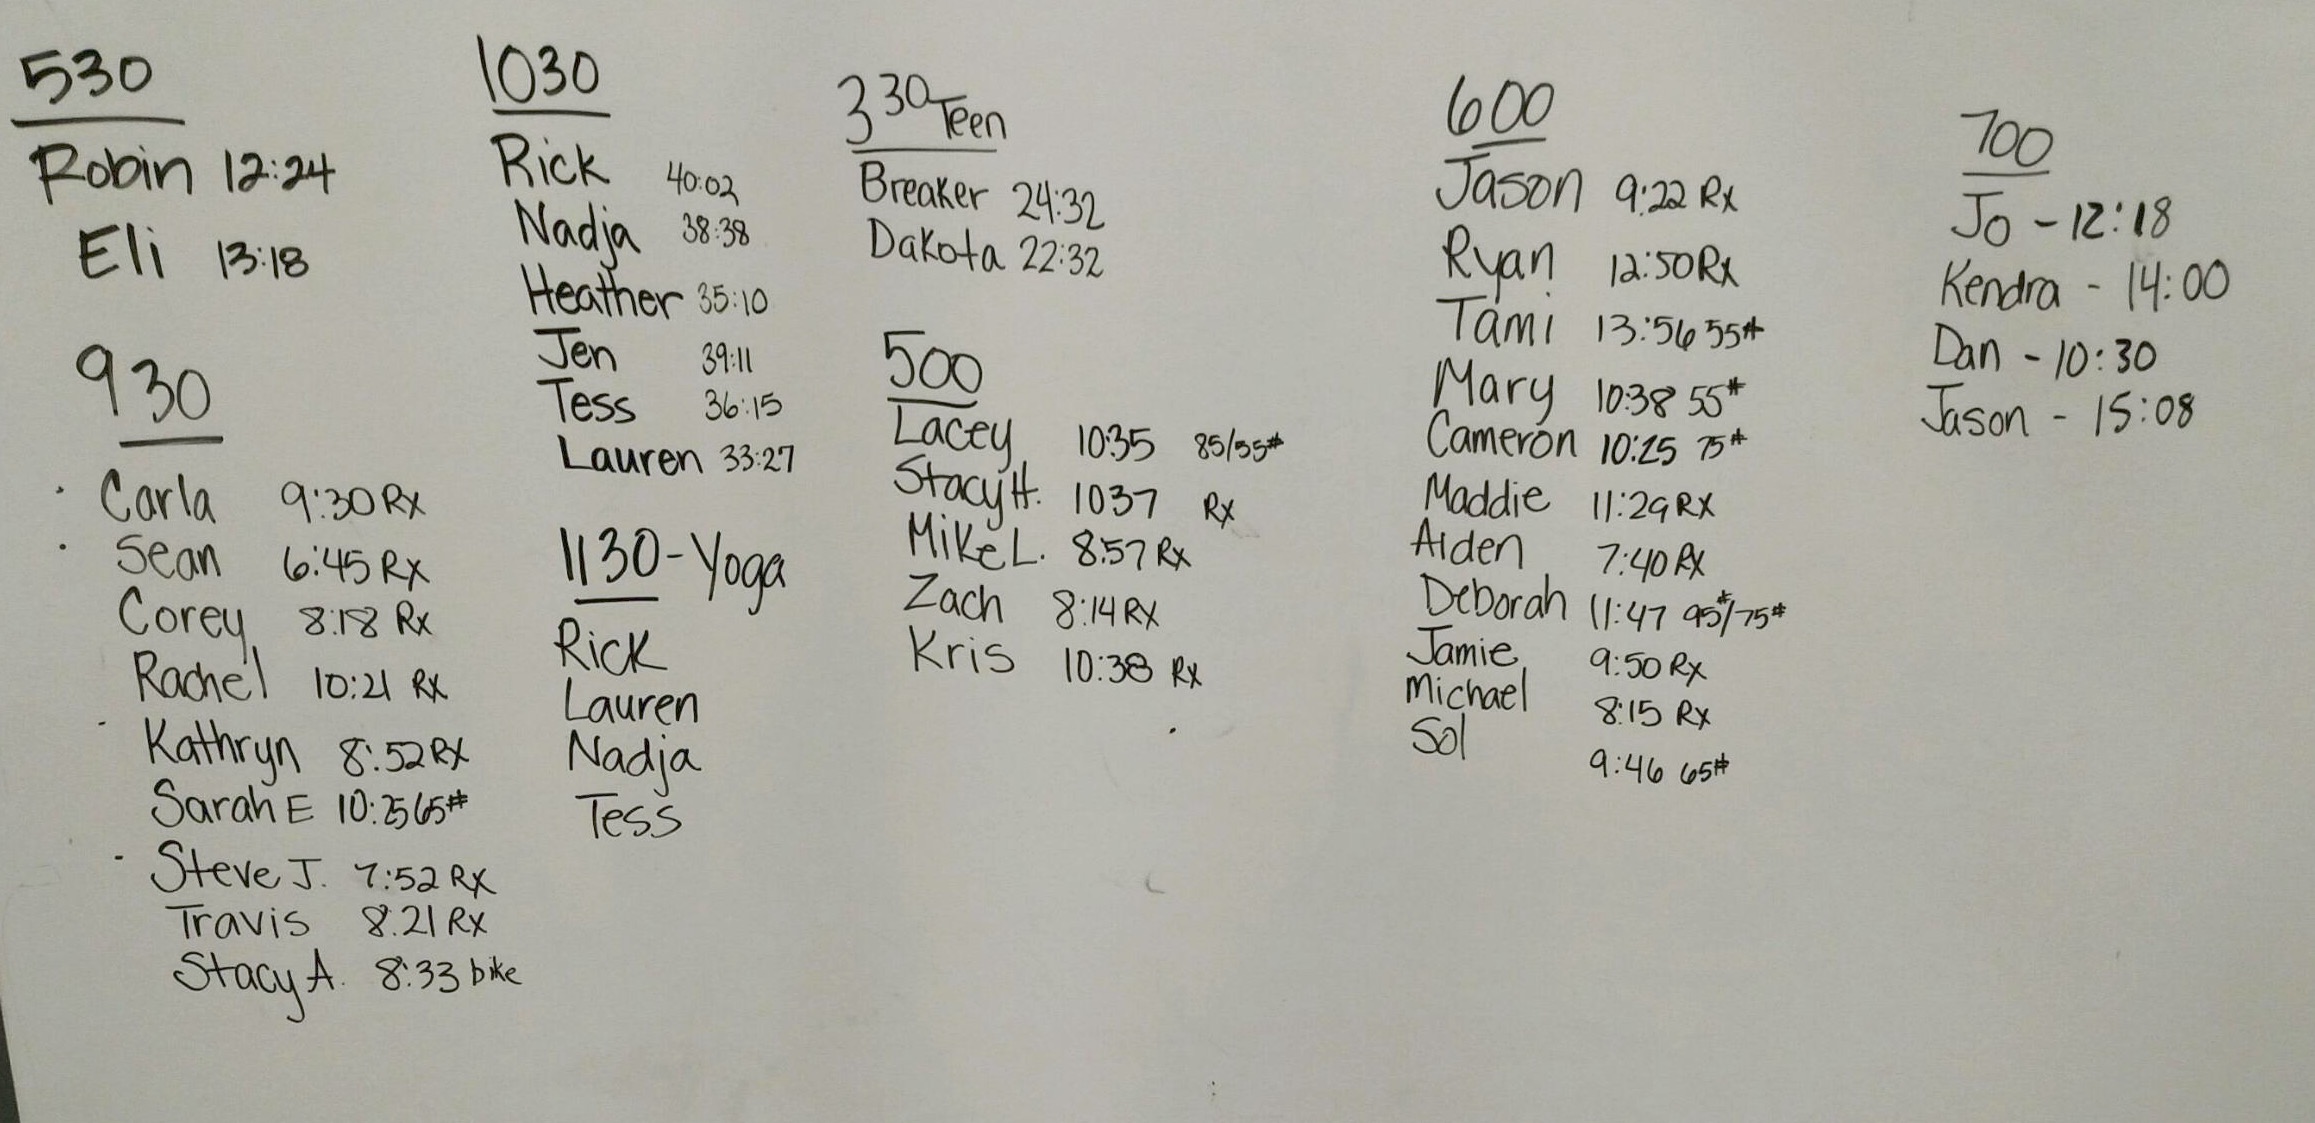 530
Robin 12:24
Eli 13:18
930
Carla 9:30 Rx
Sean 6:45 Rx
Corey 8:18 Rx
Rachel 10:21 Rx
Kathryn 8:52 Rx
Sarah E 10:25 65#
Steve J. 7:52 Rx
Travis 8:21 Rx
Stacy A. 8:33 bike
1030
Rick 40:02
Nadja 38:38
Heather 35:10
Jen 39:11
Tess 36:15
Lauren 33:27
1130-Yoga
Rick
Lauren
Nadja
Tess
330 Teen
Breaker 24:32
Dakota 22:32
500
Lacey 10:35 85/55#
Stacy H. 1037 Rx
Mike L. 8:57 Rx
Zach 8:14 Rx
Kris 10:38 Rx
600
Jason 9:22 Rx
Ryan 12:50 Rx
Tami 13:56 55#
Mary 10:38 55#
Cameron 10:25 75#
Maddie 11:29 Rx
Aiden 7:40 Rx
Deborah 11:47 95#/75#
Jamie 9:50 Rx
Michael 8:15 Rx
Sol 9:46 65#
700
Jo - 12:18
Kendra - 14:00
Dan - 10:30
Jason - 15:08